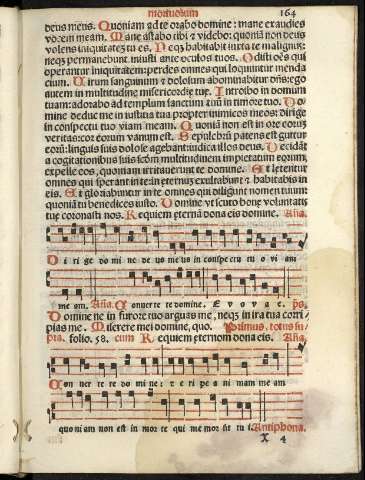 mortuorum 164
deus meus. Quoniam ad te orabo domine: mane exaudies
vocem meam. Mane astabo tibi & videbo: quoniā non deus
volens iniquitatē tu es. Neqȝ habitabit iuxta te malignus:
neqȝ permanebunt iniusti ante oculos tuos. Odisti oēs qui
operantur iniquitatem: perdes omnes qui loquuntur menda
cium. Virum sanguinum & dolosum abominabitur dñs: ego
autem in multitudine misericordie tue. Introibo in domum
tuam: adorabo ad templum sanctum tuū in timore tuo. Do
mine deduc me in iustitia tua propter inimicos meos: dirige
in conspectu tuo viam meam. Quoniā non est in ore eorum
veritas: cor eorum vanum est. Sepulcrū patens est guttur
eorū: linguis suis dolose agebant: iudica illos deus. Decidāt
a cogitationibus suis scđm multitudinem impietatum eorum,
expelle eos, quoniam irritauerunt te domine. Et letentur
omnes qui sperant in te: in eternum exultabunt: & habitabis in
eis. Et gloriabuntur in te omnes qui diligunt nomen tuum:
quoniā tu benedices iusto. Domine vt scuto bone voluntatis
tue coronasti nos. Requiem eternā dona eis domine. Añā.
Di ri ge do mi ne de us me us in conspe ctu tu o vi am
me am. Añā. Conuerte te domine. E v o v a e. ps.
Domine ne in furore tuo arguas me, neqȝ in ira tua corri/
pias me. Miserere mei domine, quo. Primus. totus su/
pra. folio. 58. cum Requiem eternam dona eis. Añā.
Con uer te re do mi ne: e ri pe a ni mam me am
quo ni am non est in mor te qui me mor sit tu i. Antiphona.
X 4